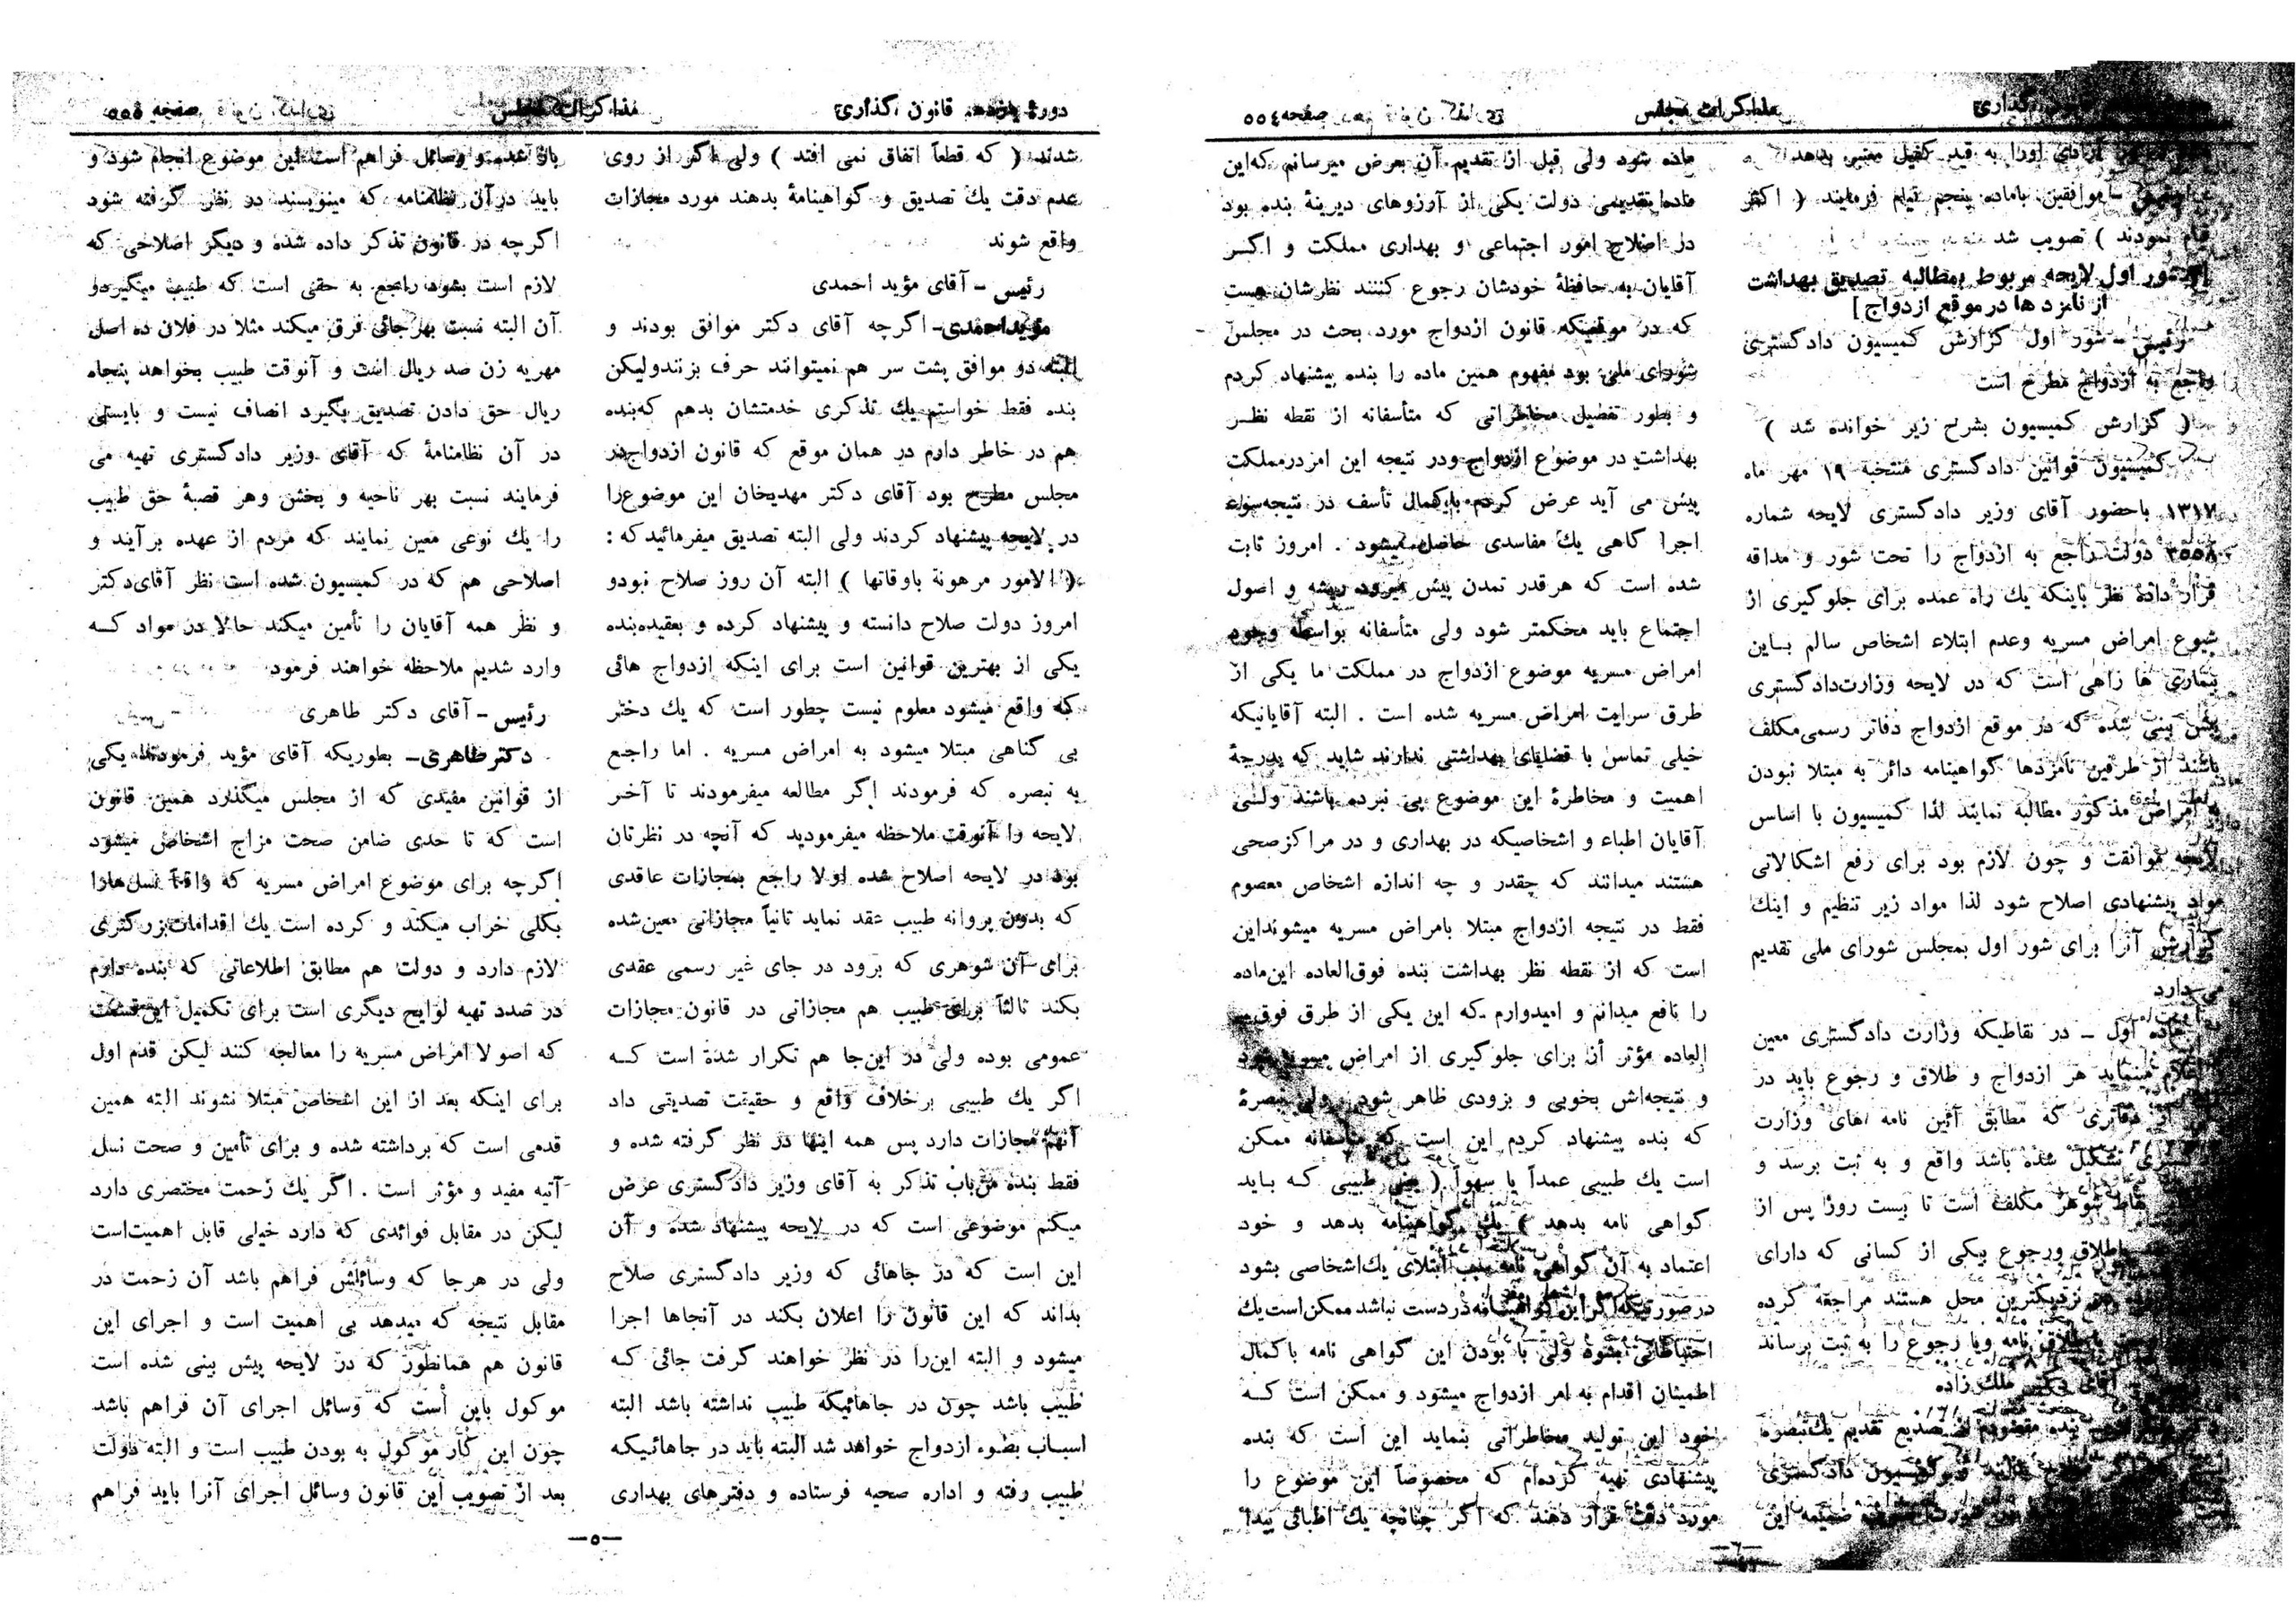 قانون گذاری
مذاکرات مجلس
صفحه ٥٥٤
آزادی اورا به قید کفیل معتبر بدهد
موافقین باماده پنجم قیام فرمایند ( اکثر
قیام نمودند ) تصویب شد
شور اول لایحه مربوط بمطالبه تصدیق بهداشت
از نامزد ها در موقع ازدواج ]
رئیس ـ شور اول گزارش کمیسیون دادگستری
راجع به ازدواج مطرح است
( گزارش کمیسیون بشرح زیر خوانده شد )
کمیسیون قوانین دادگستری منتخبه ١٩ مهر ماه
١٣١٧ باحضور آقای وزیر دادگستری لایحه شماره
٣٥٥٨ دولت راجع به ازدواج را تحت شور و مداقه
قرار داده نظر باینکه یك راه عمده برای جلوگیری از
شیوع امراض مسریه وعدم ابتلاء اشخاص سالم بـاین
بیماری ها راهی است که در لایحه وزارت دادگستری
پیش بینی شده که در موقع ازدواج دفاتر رسمی مکلف
باشند از طرفین نامزدها گواهینامه دائر به مبتلا نبودن
به امراض مذکور مطالبه نمایند لذا کمیسیون با اساس
لایحه موافقت و چون لازم بود برای رفع اشکالاتی
مواد پیشنهادی اصلاح شود لذا مواد زیر تنظیم و اینك
گزارش آنرا برای شور اول بمجلس شورای ملی تقدیم
می دارد
ماده اول ـ در نقاطیکه وزارت دادگستری معین
اعلام مینماید هر ازدواج و طلاق و رجوع باید در
از دفاتری که مطابق آئین نامه های وزارت
تشکیل شده باشد واقع و به ثبت برسد و
نقاط شوهر مکلف است تا بیست روز پس از
طلاق ورجوع بیکی از کسانی که دارای
نزدیکترین محل هستند مراجعه کرده
طلاق نامه ویا رجوع را به ثبت برساند
آقای دکتر ملك زاده
بنده مقصودم از تصدیع تقدیم یك تبصره
کمیسیون دادگستری
ضمیمه این
ماده شود ولی قبل از تقدیم آن بعرض میرسانم که این
ماده تقدیمی دولت یکی از آرزوهای دیرینهٔ بنده بود
در اصلاح امور اجتماعی و بهداری مملکت و اگـر
آقایان به حافظهٔ خودشان رجوع کنند نظرشان هست
که در موقعیکه قانون ازدواج مورد بحث در مجلس
شورای ملی بود مفهوم همین ماده را بنده پیشنهاد کردم
و بطور تفصیل مخاطراتی که متأسفانه از نقطه نظـر
بهداشت در موضوع ازدواج ودر نتیجه این امر درمملکت
پیش می آید عرض کردم باکمال تأسف در نتیجه سوء
اجرا گاهی یك مفاسدی حاصل میشود . امروز ثابت
شده است که هر قدر تمدن پیش میرود ریشه و اصول
اجتماع باید محکمتر شود ولی متأسفانه بواسطه وجود
امراض مسریه موضوع ازدواج در مملکت ما یکی از
طرق سرایت امراض مسریه شده است . البته آقایانیکه
خیلی تماس با قضایای بهداشتی ندارند شاید که بدرجهٔ
اهمیت و مخاطرهٔ این موضوع پی نبرده باشند ولـی
آقایان اطباء و اشخاصیکه در بهداری و در مراکز صحی
هستند میدانند که چقدر و چه اندازه اشخاص معصوم
فقط در نتیجه ازدواج مبتلا بامراض مسریه میشوند این
است که از نقطه نظر بهداشت بنده فوق العاده این ماده
را نافع میدانم و امیدوارم که این یکی از طرق فوق
العاده مؤثر آن برای جلوگیری از امراض مسریه
و نتیجه‌اش بخوبی و بزودی ظاهر شود . ولی تبصرهٔ
که بنده پیشنهاد کردم این است که متأسفانه ممکن
است یك طبیبی عمداً یا سهواً ( یعنی طبیبی کـه بـاید
گواهی نامه بدهد ) یك گواهینامه بدهد و خود
اعتماد به آن گواهی نامه سبب ابتلای یك اشخاصی بشود
در صورتیکه اگر این گواهینامه در دست نباشد ممکن است یك
احتیاطاتی بشود ولی با بودن این گواهی نامه باکمال
اطمینان اقدام به امر ازدواج میشود و ممکن است کـه
خود این تولید مخاطراتی بنماید این است که بنده
پیشنهادی تهیه کرده‌ام که مخصوصاً این موضوع را
مورد دقت قرار دهند که اگر چنانچه یك اطبائی پیدا
ـ٦ـ
دورهٔ یازدهم قانون گذاری
مذاکرات مجلس
صفحه ٥٥٥
شدند ( که قطعاً اتفاق نمی افتد ) ولی اگر از روی
عدم دقت یك تصدیق و گواهینامهٔ بدهند مورد مجازات
واقع شوند
رئیس ـ آقای مؤید احمدی
مؤید احمدی ـ اگرچه آقای دکتر موافق بودند و
البته دو موافق پشت سر هم نمیتوانند حرف بزنند ولیکن
بنده فقط خواستم یك تذکری خدمتشان بدهم که بنده
هم در خاطر دارم در همان موقع که قانون ازدواج در
مجلس مطرح بود آقای دکتر مهدیخان این موضوع را
در لایحه پیشنهاد کردند ولی البته تصدیق میفرمائید که :
( الامور مرهونة باوقاتها ) البته آن روز صلاح نبود و
امروز دولت صلاح دانسته و پیشنهاد کرده و بعقیده بنده
یکی از بهترین قوانین است برای اینکه ازدواج هائی
که واقع میشود معلوم نیست چطور است که یك دختر
بی گناهی مبتلا میشود به امراض مسریه . اما راجع
به تبصره که فرمودند اگر مطالعه میفرمودند تا آخـر
لایحه را آنوقت ملاحظه میفرمودید که آنچه در نظرتان
بود در لایحه اصلاح شده اولا راجع بمجازات عاقدی
که بدون پروانه طبیب عقد نماید ثانیاً مجازاتی معین شده
برای آن شوهری که برود در جای غیر رسمی عقدی
بکند ثالثاً برای طبیب هم مجازاتی در قانون مجازات
عمومی بوده ولی در این جا هم تکرار شده است کـه
اگر یك طبیبی برخلاف واقع و حقیقت تصدیقی داد
آنهم مجازات دارد پس همه اینها در نظر گرفته شده و
فقط بنده من باب تذکر به آقای وزیر دادگستری عرض
میکنم موضوعی است که در لایحه پیشنهاد شده و آن
این است که در جاهائی که وزیر دادگستری صلاح
بداند که این قانون را اعلان بکند در آنجاها اجرا
میشود و البته این را در نظر خواهند گرفت جائی کـه
طبیب باشد چون در جاهائیکه طبیب نداشته باشد البته
اسبـاب بطوء ازدواج خواهد شد البته باید در جاهائیکه
طبیب رفته و اداره صحیه فرستاده و دفترهای بهداری
باز شده و وسائل فراهم است این موضوع انجام شود و
باید در آن نظامنامه که مینویسند در نظر گرفته شود
اگرچه در قانون تذکر داده شده و دیگر اصلاحی که
لازم است بشود راجع به حقی است که طبیب میگیرد و
آن البته نسبت بهر جائی فرق میکند مثلا در فلان ده اصل
مهریه زن صد ریال است و آنوقت طبیب بخواهد پنجاه
ریال حق دادن تصدیق بگیرد انصاف نیست و بایستی
در آن نظامنامهٔ که آقای وزیر دادگستری تهیه می
فرمایند نسبت بهر ناحیه و بخش وهر قصبهٔ حق طبیب
را یك نوعی معین نمایند که مردم از عهده برآیند و
اصلاحی هم که در کمیسیون شده است نظر آقای دکتر
و نظر همه آقایان را تأمین میکند حالا در مواد کـه
وارد شدیم ملاحظه خواهند فرمود
رئیس ـ آقای دکتر طاهری
دکتر طاهری ـ بطوریکه آقای مؤید فرمودند یکی
از قوانین مفیدی که از مجلس میگذرد همین قانون
است که تا حدی ضامن صحت مزاج اشخاص میشود
اگرچه برای موضوع امراض مسریه که واقعاً نسل مارا
بکلی خراب میکند و کرده است یك اقدامات بزرگتری
لازم دارد و دولت هم مطابق اطلاعاتی که بنده دارم
در صدد تهیه لوایح دیگری است برای تکمیل این قسمت
که اصولا امراض مسریه را معالجه کنند لیکن قدم اول
برای اینکه بعد از این اشخاص مبتلا نشوند البته همین
قدمی است که برداشته شده و برای تأمین و صحت نسل
آتیه مفید و مؤثر است . اگر یك زحمت مختصری دارد
لیکن در مقابل فوائدی که دارد خیلی قابل اهمیت است
ولی در هرجا که وسائلش فراهم باشد آن زحمت در
مقابل نتیجه که میدهد بی اهمیت است و اجرای این
قانون هم همانطور که در لایحه پیش بینی شده است
موکول باین است که وسائل اجرای آن فراهم باشد
چون این کار موکول به بودن طبیب است و البته دولت
بعد از تصویب این قانون وسائل اجرای آنرا باید فراهم
ـ٥ـ